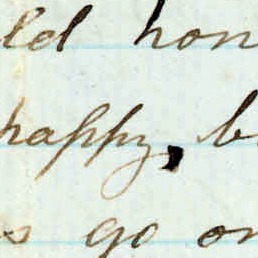 ld hon
happy, b
s go on